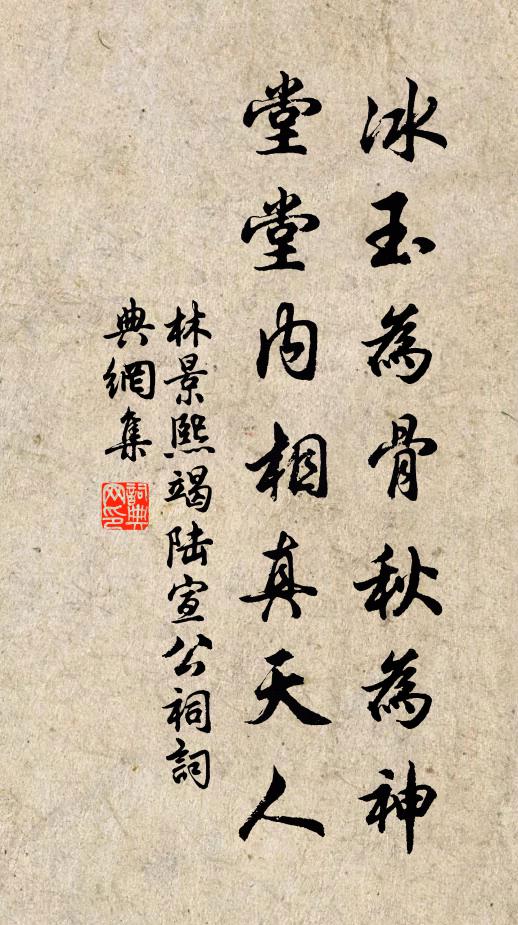 冰玉為骨秋為神
堂堂内相真天人
林景熙竭陆宣公祠詞
典網集
詞典
网印